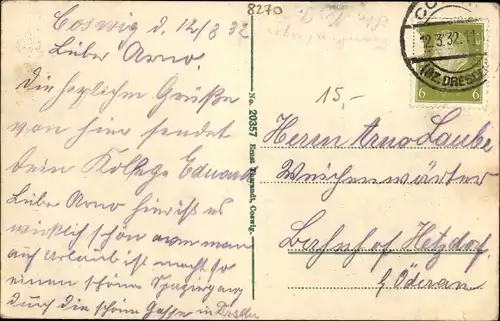 8270
Coswig d. 12/3 32
Lieber Arno.
Die herzlichen Grüße
von hier sendet
dein Kollege Eduard
Liebe Arno hier ist es
wirklich schön wenn man
auf Urlaub ist macht so
einen schönen Spaziergang
durch die schöne Gasse in Dresden
No. 20357 Ernst Coswig.
12.3.32.11
(BZ. DRESD
6 6
15,-
Herrn Arno Laube
Weichenwärter
Bahnhof Hetzdorf
b/ Oederan